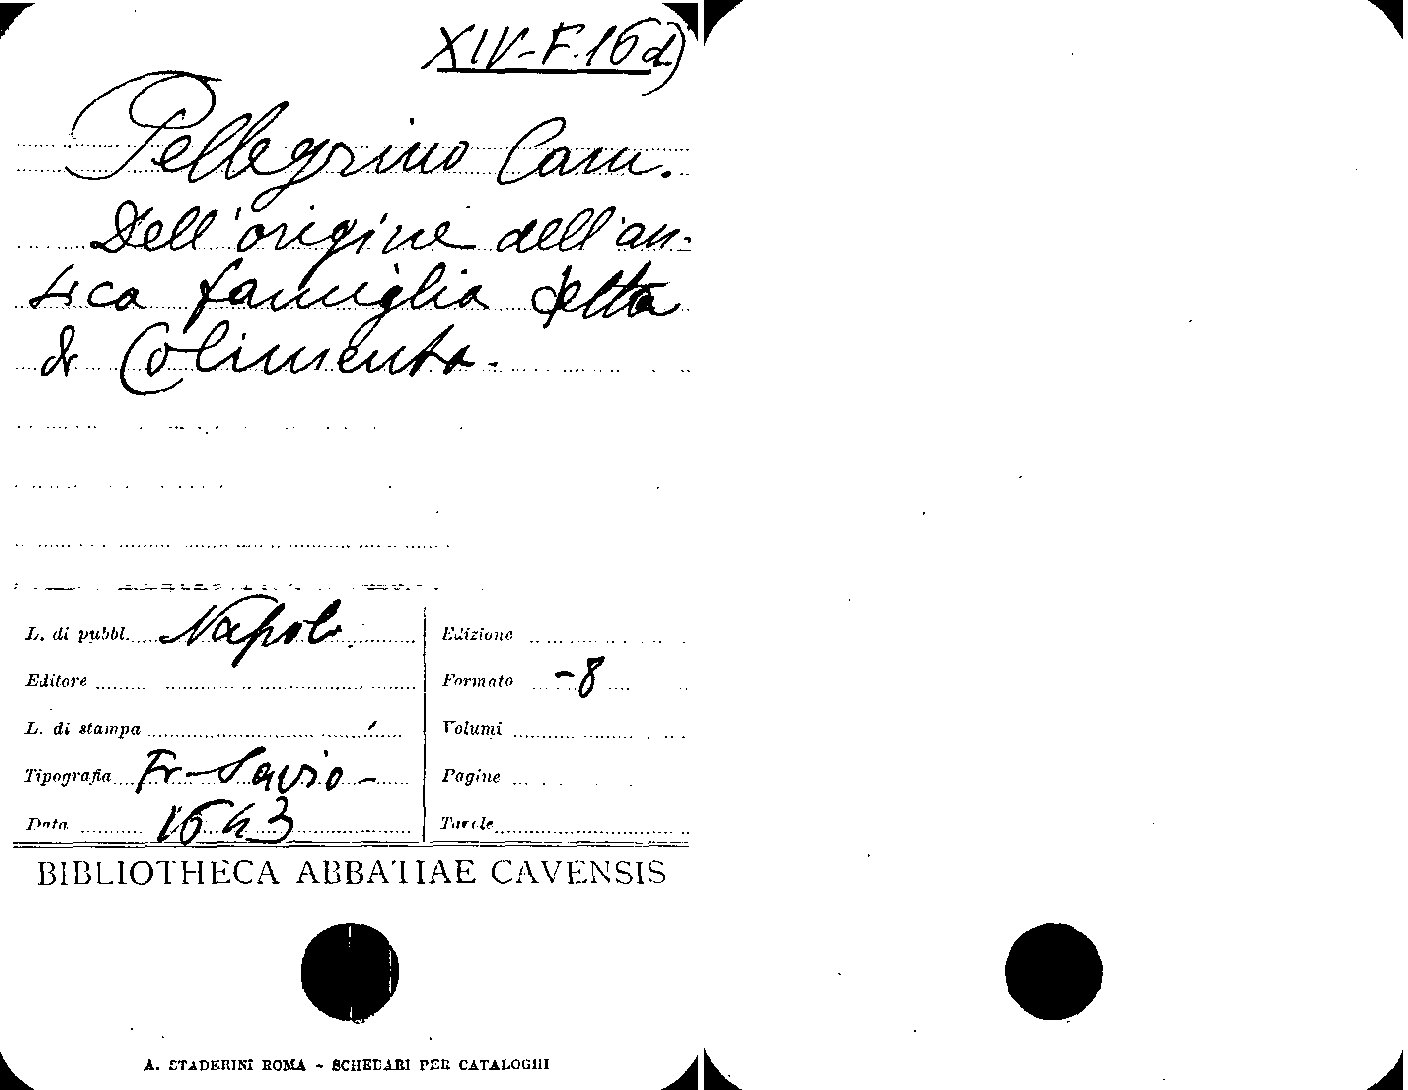 XIV-F.16 d)
Pellegrino Cam.
Dell'origine dell'an-
tica famiglia detta
di Colimenta.
L. di pubbl. Napoli
Edizione
Editore
Formato -8
L. di stampa
Volumi
Tipografia Fr. Savio
Pagine
Data 1643
Tavole
BIBLIOTHECA ABBATIAE CAVENSIS
A. STADERINI ROMA - SCHEDARI PER CATALOGHI